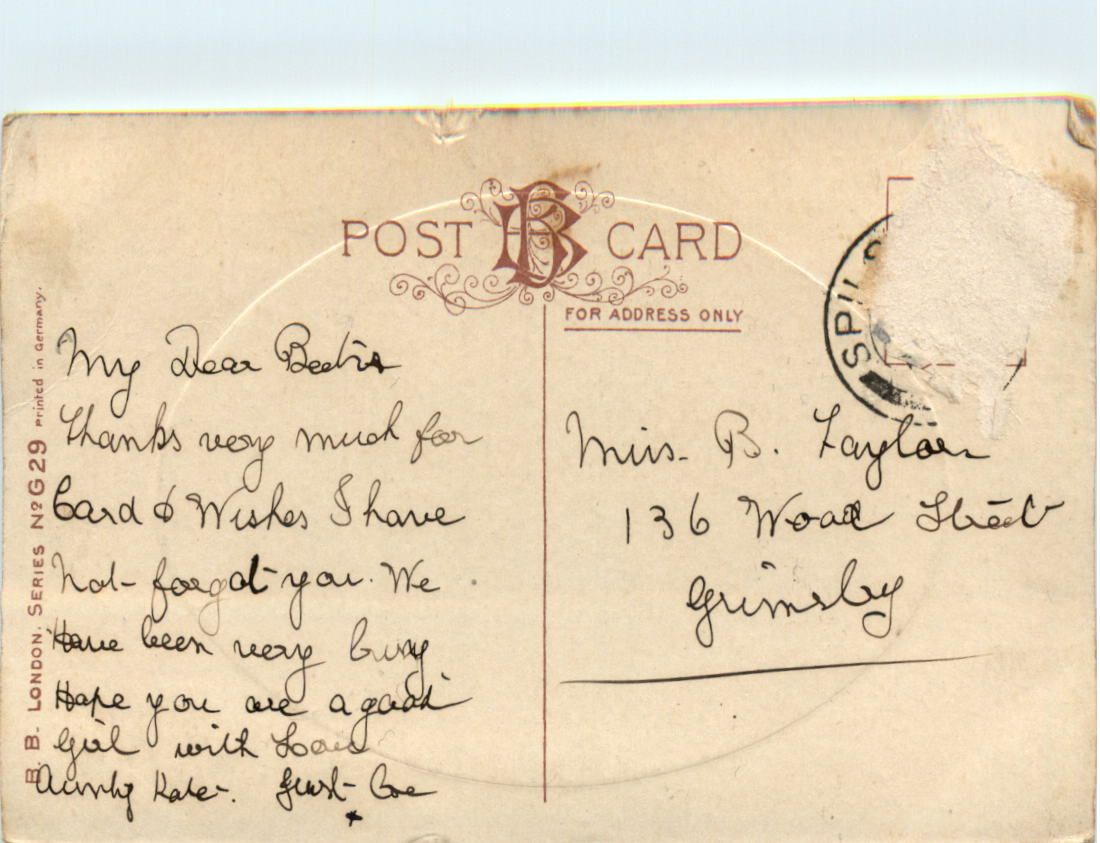 POST CARD
FOR ADDRESS ONLY
B. B. LONDON. SERIES Nº G29 Printed in Germany.
SPILS
My Dear
Thanks very much for
Card & Wishes I have
Not forgot you. We
Have been very busy
Hope you are a good
Girl with Love
Aunty Kate.
Miss B. Taylor
136 Wood Street
Grimsby